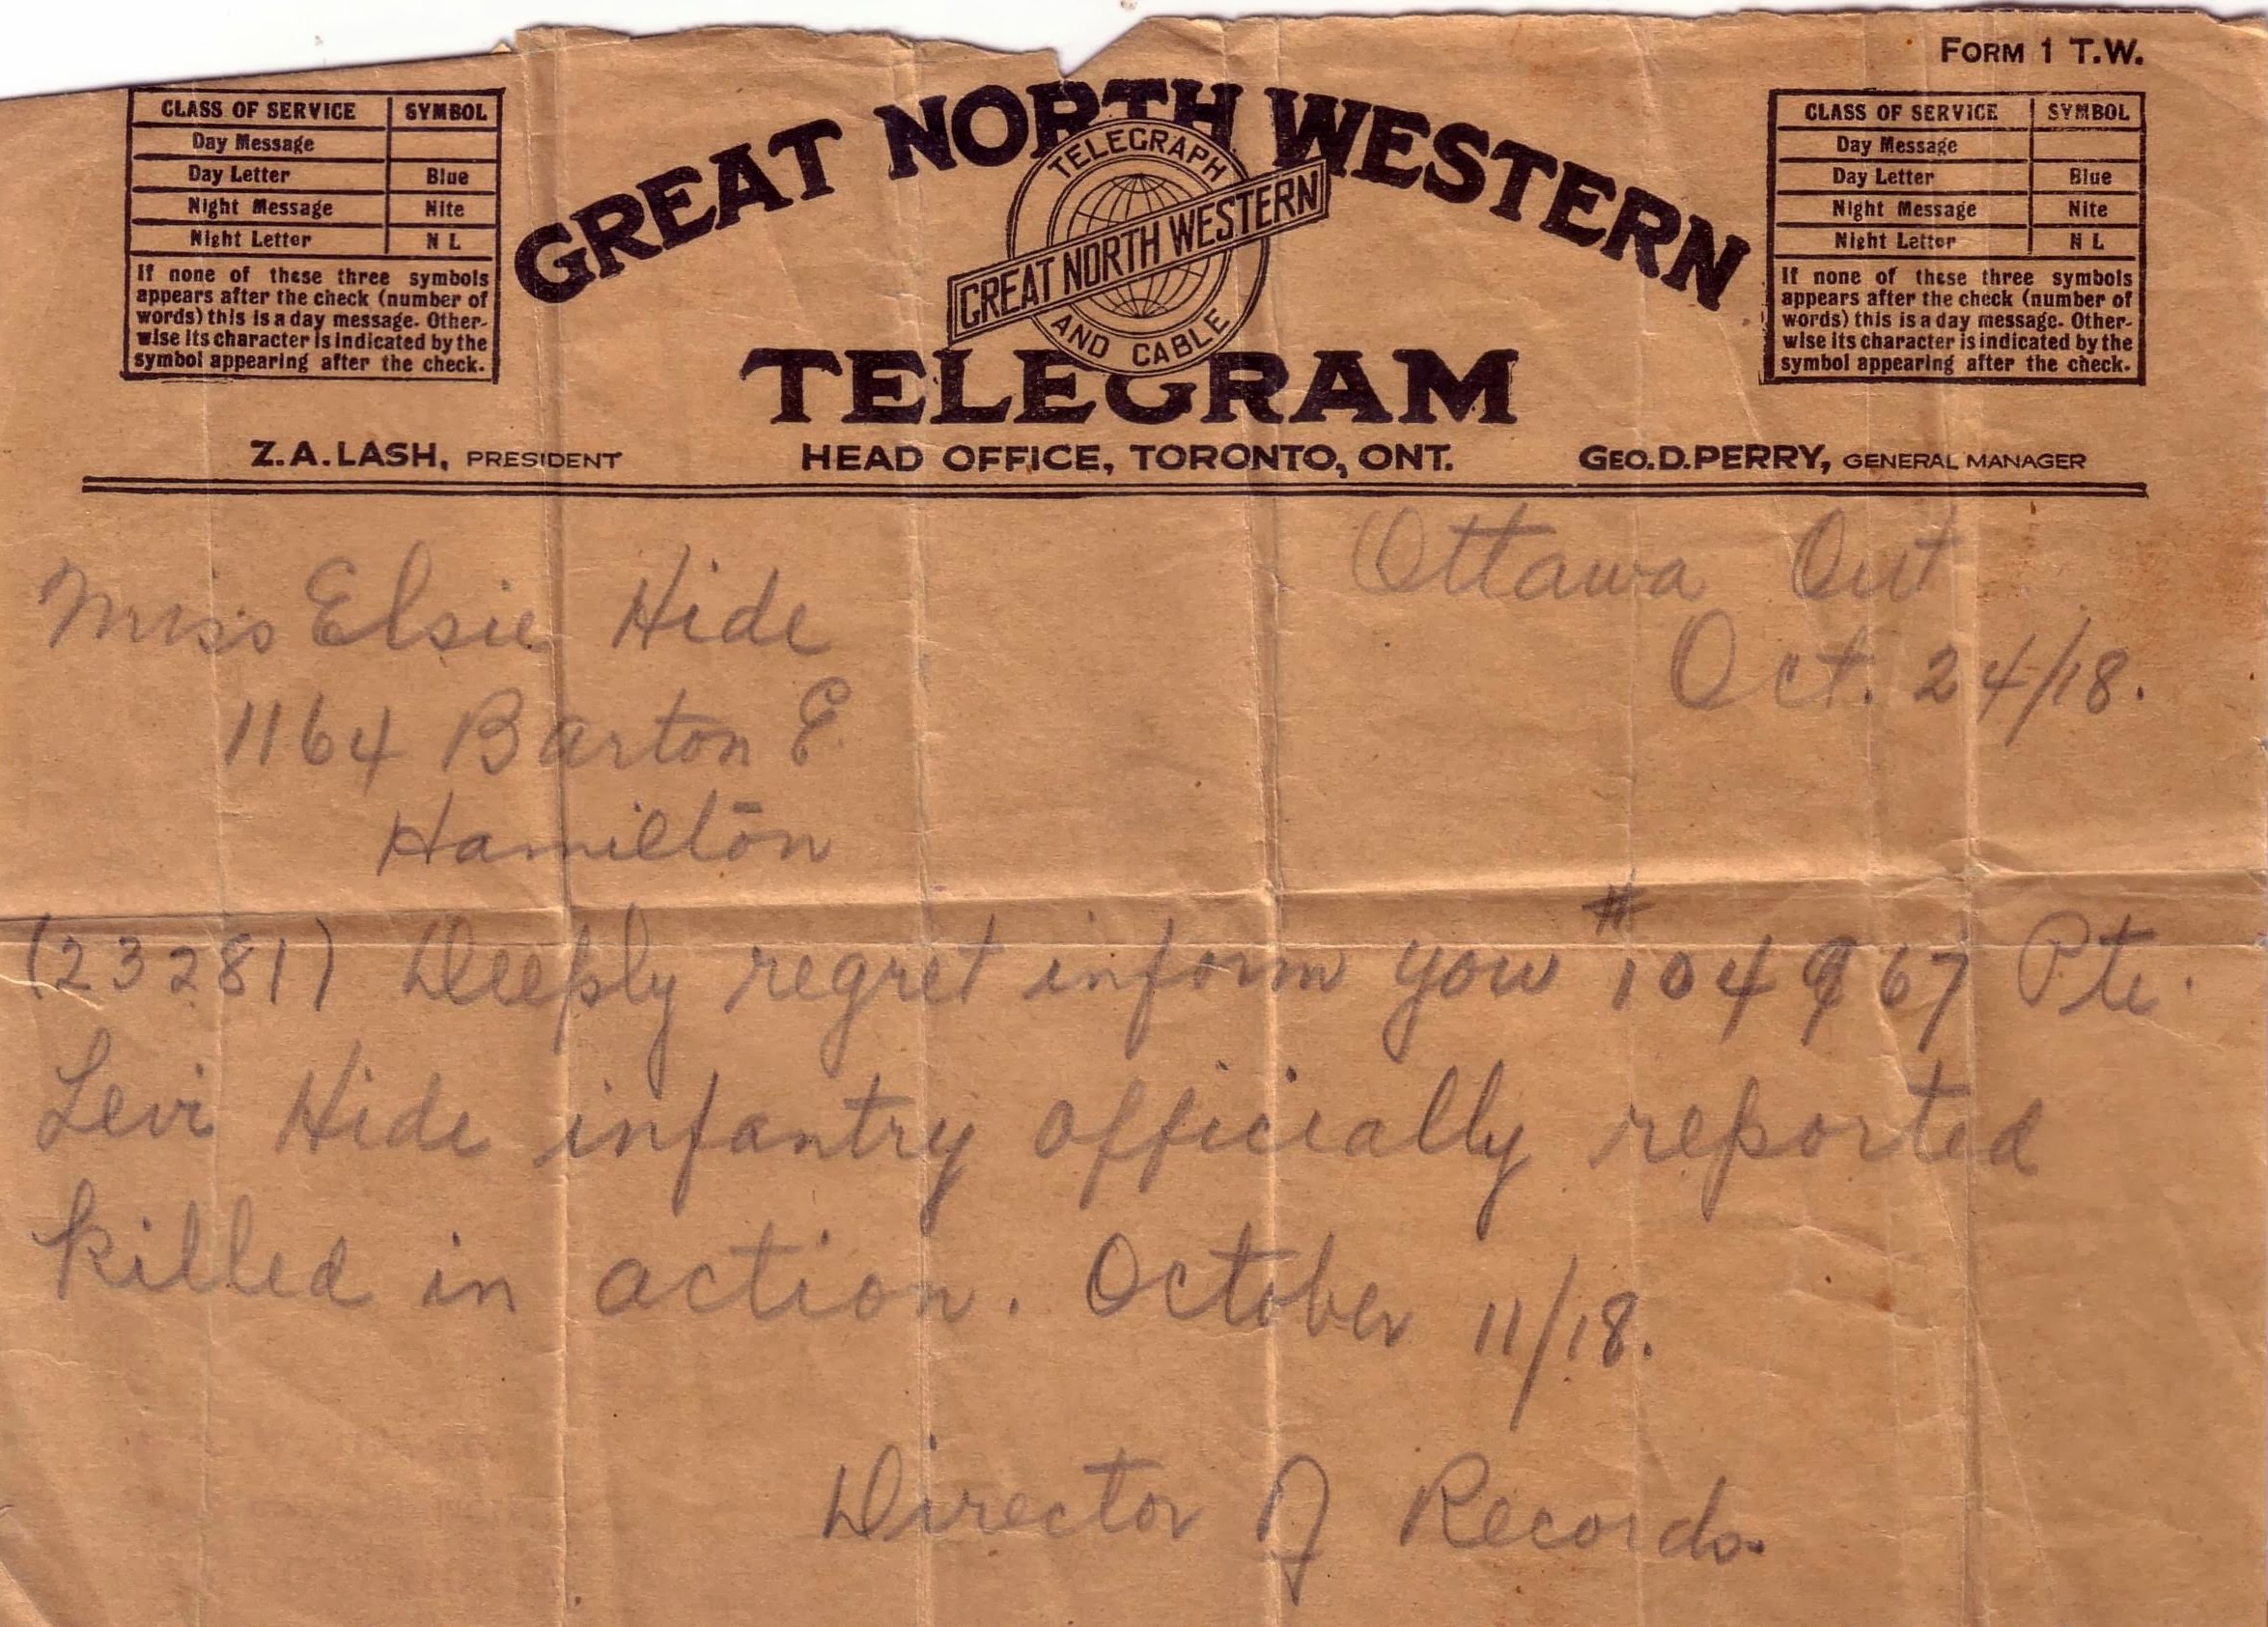 FORM 1 T.W.
CLASS OF SERVICE SYMBOL
Day Message
Day Letter Blue
Night Message Nite
Night Letter N L
If none of these three symbols
appears after the check (number of
words) this is a day message. Other-
wise its character is indicated by the
symbol appearing after the check.
GREAT NORTH WESTERN
TELEGRAPH
GREAT NORTH WESTERN
AND CABLE
TELEGRAM
CLASS OF SERVICE SYMBOL
Day Message
Day Letter Blue
Night Message Nite
Night Letter N L
If none of these three symbols
appears after the check (number of
words) this is a day message. Other-
wise its character is indicated by the
symbol appearing after the check.
Z.A. LASH, PRESIDENT HEAD OFFICE, TORONTO, ONT. GEO. D. PERRY, GENERAL MANAGER
Ottawa Ont
Oct. 24/18.
Miss Elsie Hide
1164 Barton E.
Hamilton
(23281) Deeply regret inform you #104967 Pte.
Levi Hide infantry officially reported
killed in action. October 11/18.
Director of Records.